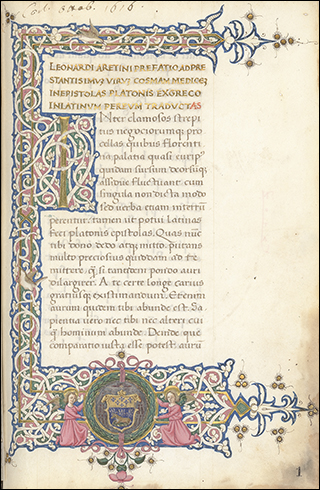 Cod. 1616.
LEONARDI ARETINI PREFATIO AD PRE
STANTISIMVM VIRVM COSMAM MEDICEṼ
IN EPISTOLAS PLATONIS EX GRECO
IN LATINVM PER EVM TRADVCTAS
INter clamosos strepi
tus negociorumq; pro
cellas quibus florenti
na palatia quasi euripꝰ
quidam sursum deorsumq;
assidue fluctuant. cum
singula non dicta modo
sed verba etiam interrũ
perentur. tamen ut potui latinas
feci platonis epistolas. Quas nũc
tibi dono dedo atq; mitto. putans
multo preciosius quiddam ad te
mittere, q̃ si tantũdem pondo auri
elargirer. A te certe longe carius
gratiusq; existimandum. Etenim
aurum quidem tibi abunde est. Sa
pientia uero nec tibi nec alteri cui
q̃ hominum abunde. Deinde que
comparatio iusta esse potest aurũ
1